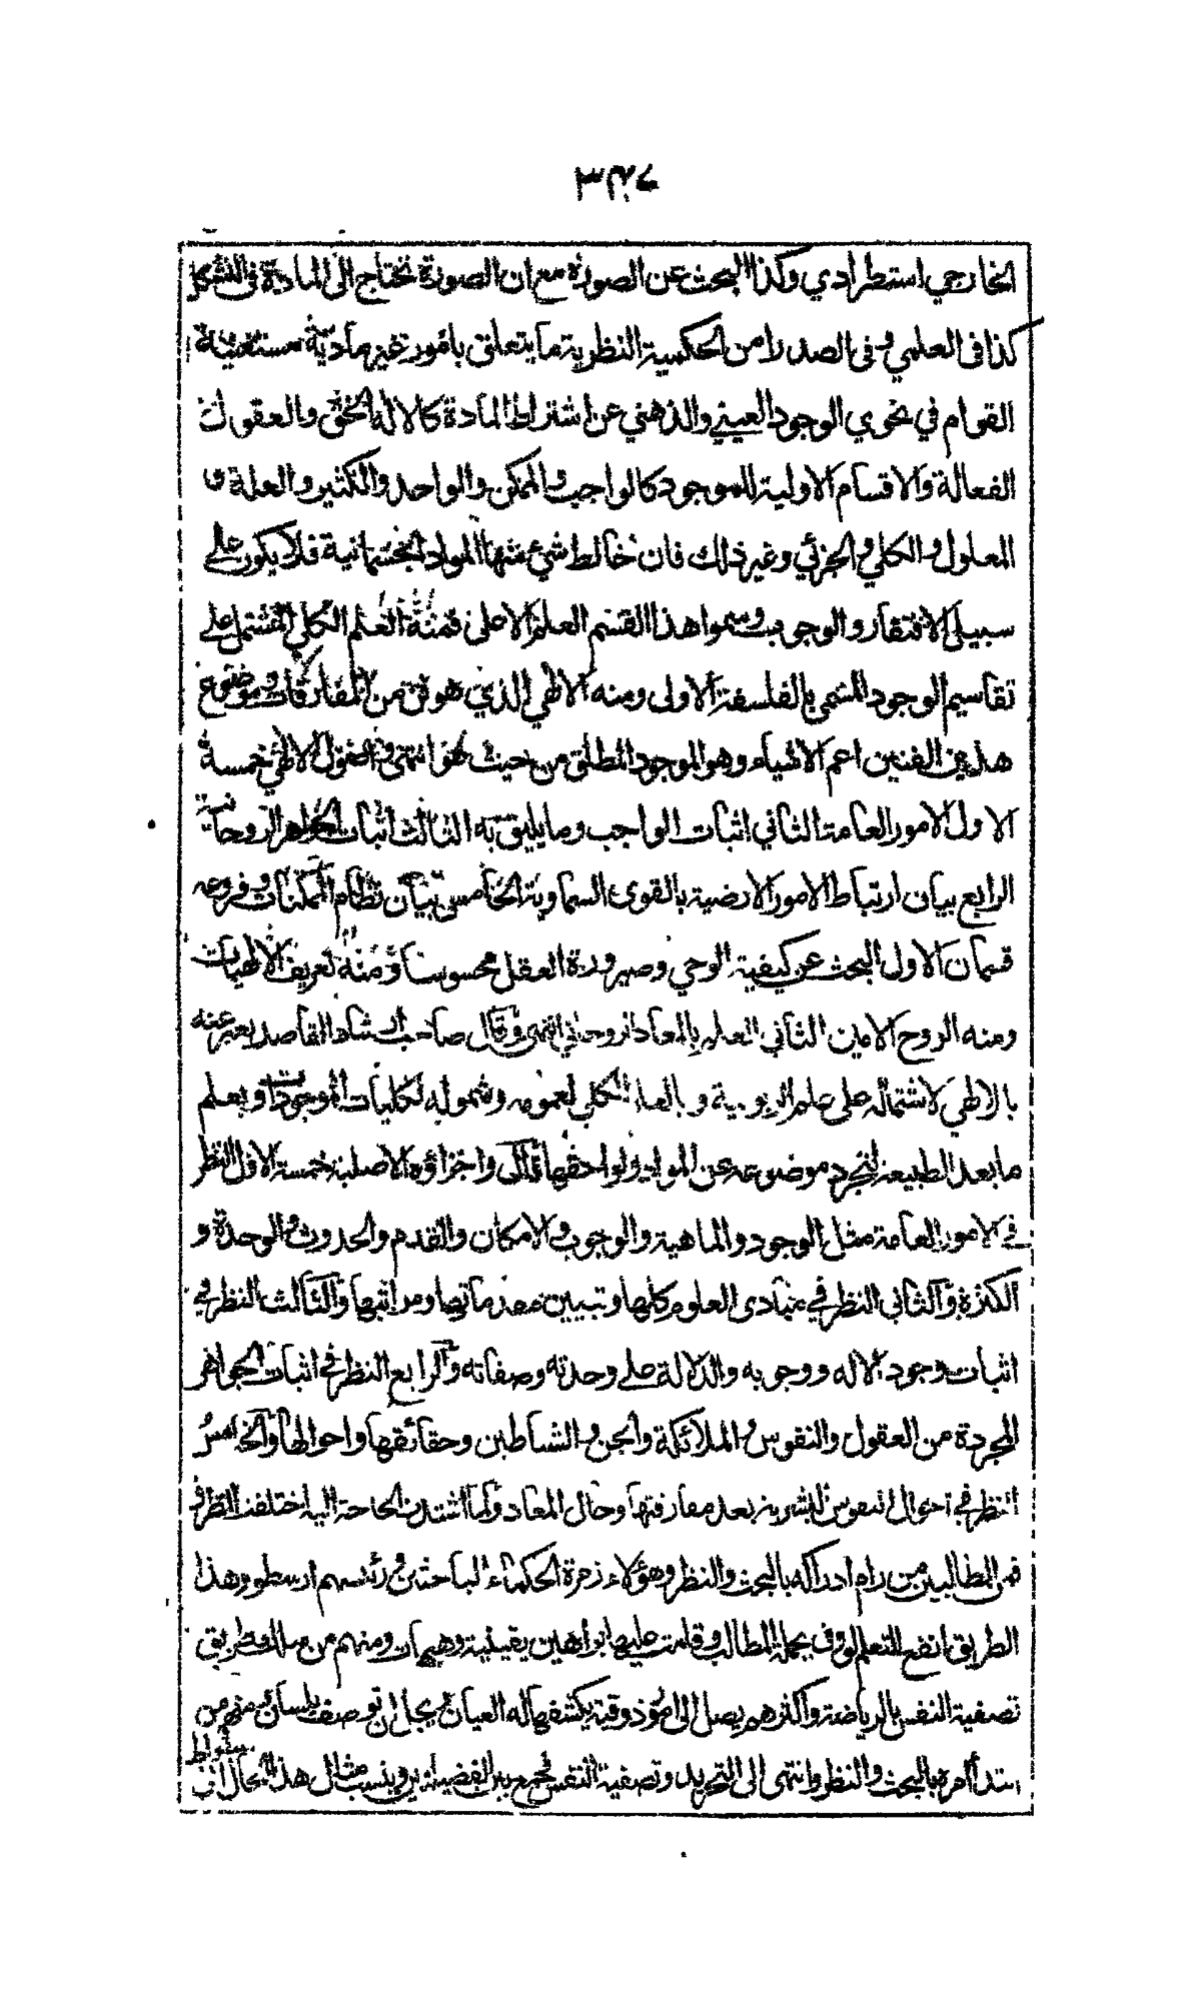 ٣٤٧
الخارجي استطرادي وكذا البحث عن الصورة مع ان الصورة تحتاج الى المادة في التشكل
كذا في العلمي وفي الصدرا من الحكمية النظرية ما يتعلق بامور غير مادية مستغنية
القوام في نحوي الوجود العيني والذهني عن اشتراط المادة كالاله الحق والعقول
الفعالة والاقسام الاولية للموجود كالواجب والممكن والواحد والكثير والعلة و
المعلول والكلي والجزئي وغير ذلك فان خالط شيء منها المواد الجسمانية فلا يكون على
سبيل الافتقار والوجوب وسموا هذا القسم العلم الاعلى فمنه العلم الكلي المشتمل على
تقاسيم الوجود المسمى بالفلسفة الاولى ومنه الالهي الذي هو فن من المفارقات وموضوع
هذين الفنين اعم الاشياء وهو الموجود المطلق من حيث هو انتهى واصول الالهي خمسة
الاول الامور العامة الثاني اثبات الواجب وما يليق به الثالث اثبات الجواهر الروحانية
الرابع بيان ارتباط الامور الارضية بالقوى السماوية الخامس بيان نظام الممكنات وفروعه
قسمان الاول البحث عن كيفية الوحي وصيرورة العقل محسوسا ومنه تعريف الالهيات
ومنه الروح الامين الثاني العلم بالمعاد الروحاني انتهى وقال صاحب ارشاد القاصد يعبر عنه
بالالهي لاشتماله على علم الربوبية وبالعلم الكلي لعمومه وشموله لكليات الموجودات وبعلم
ما بعد الطبيعة لتجرد موضوعه عن المواد ولواحقها قال واجزاؤه الاصلية خمسة الاول النظر
في الامور العامة مثل الوجود والماهية والوجوب والامكان والقدم والحدوث والوحدة و
الكثرة والثاني النظر في مبادى العلوم كلها وتبيين مقدماتها ومراتبها والثالث النظر في
اثبات وجود الاله ووجوبه والدلالة على وحدته وصفاته والرابع النظر في اثبات الجواهر
المجردة من العقول والنفوس والملائكة والجن والشياطين وحقائقها واحوالها والخامس
النظر في احوال النفوس البشرية بعد مفارقتها وحال المعاد ولما اشتدت الحاجة اليه اختلفت الطرق
فمن الطالبين من رام ادراكه بالبحث والنظر وهؤلاء زمرة الحكماء الباحثين ورئيسهم ارسطو وهذا
الطريق انفع للتعلم لو وفى بجملة المطالب وقامت عليها براهين يقينية وهيهات ومنهم من سلك طريق
تصفية النفس بالرياضة واكثرهم يصل الى امور ذوقية يكشفها له العيان ويجل ان توصف بلسان ومنهم من
ابتدأ امره بالبحث والنظر وانتهى الى التجريد وتصفية النفس فجمع بين الفضيلتين وينسب مثال هذا الحال الى
سقراط